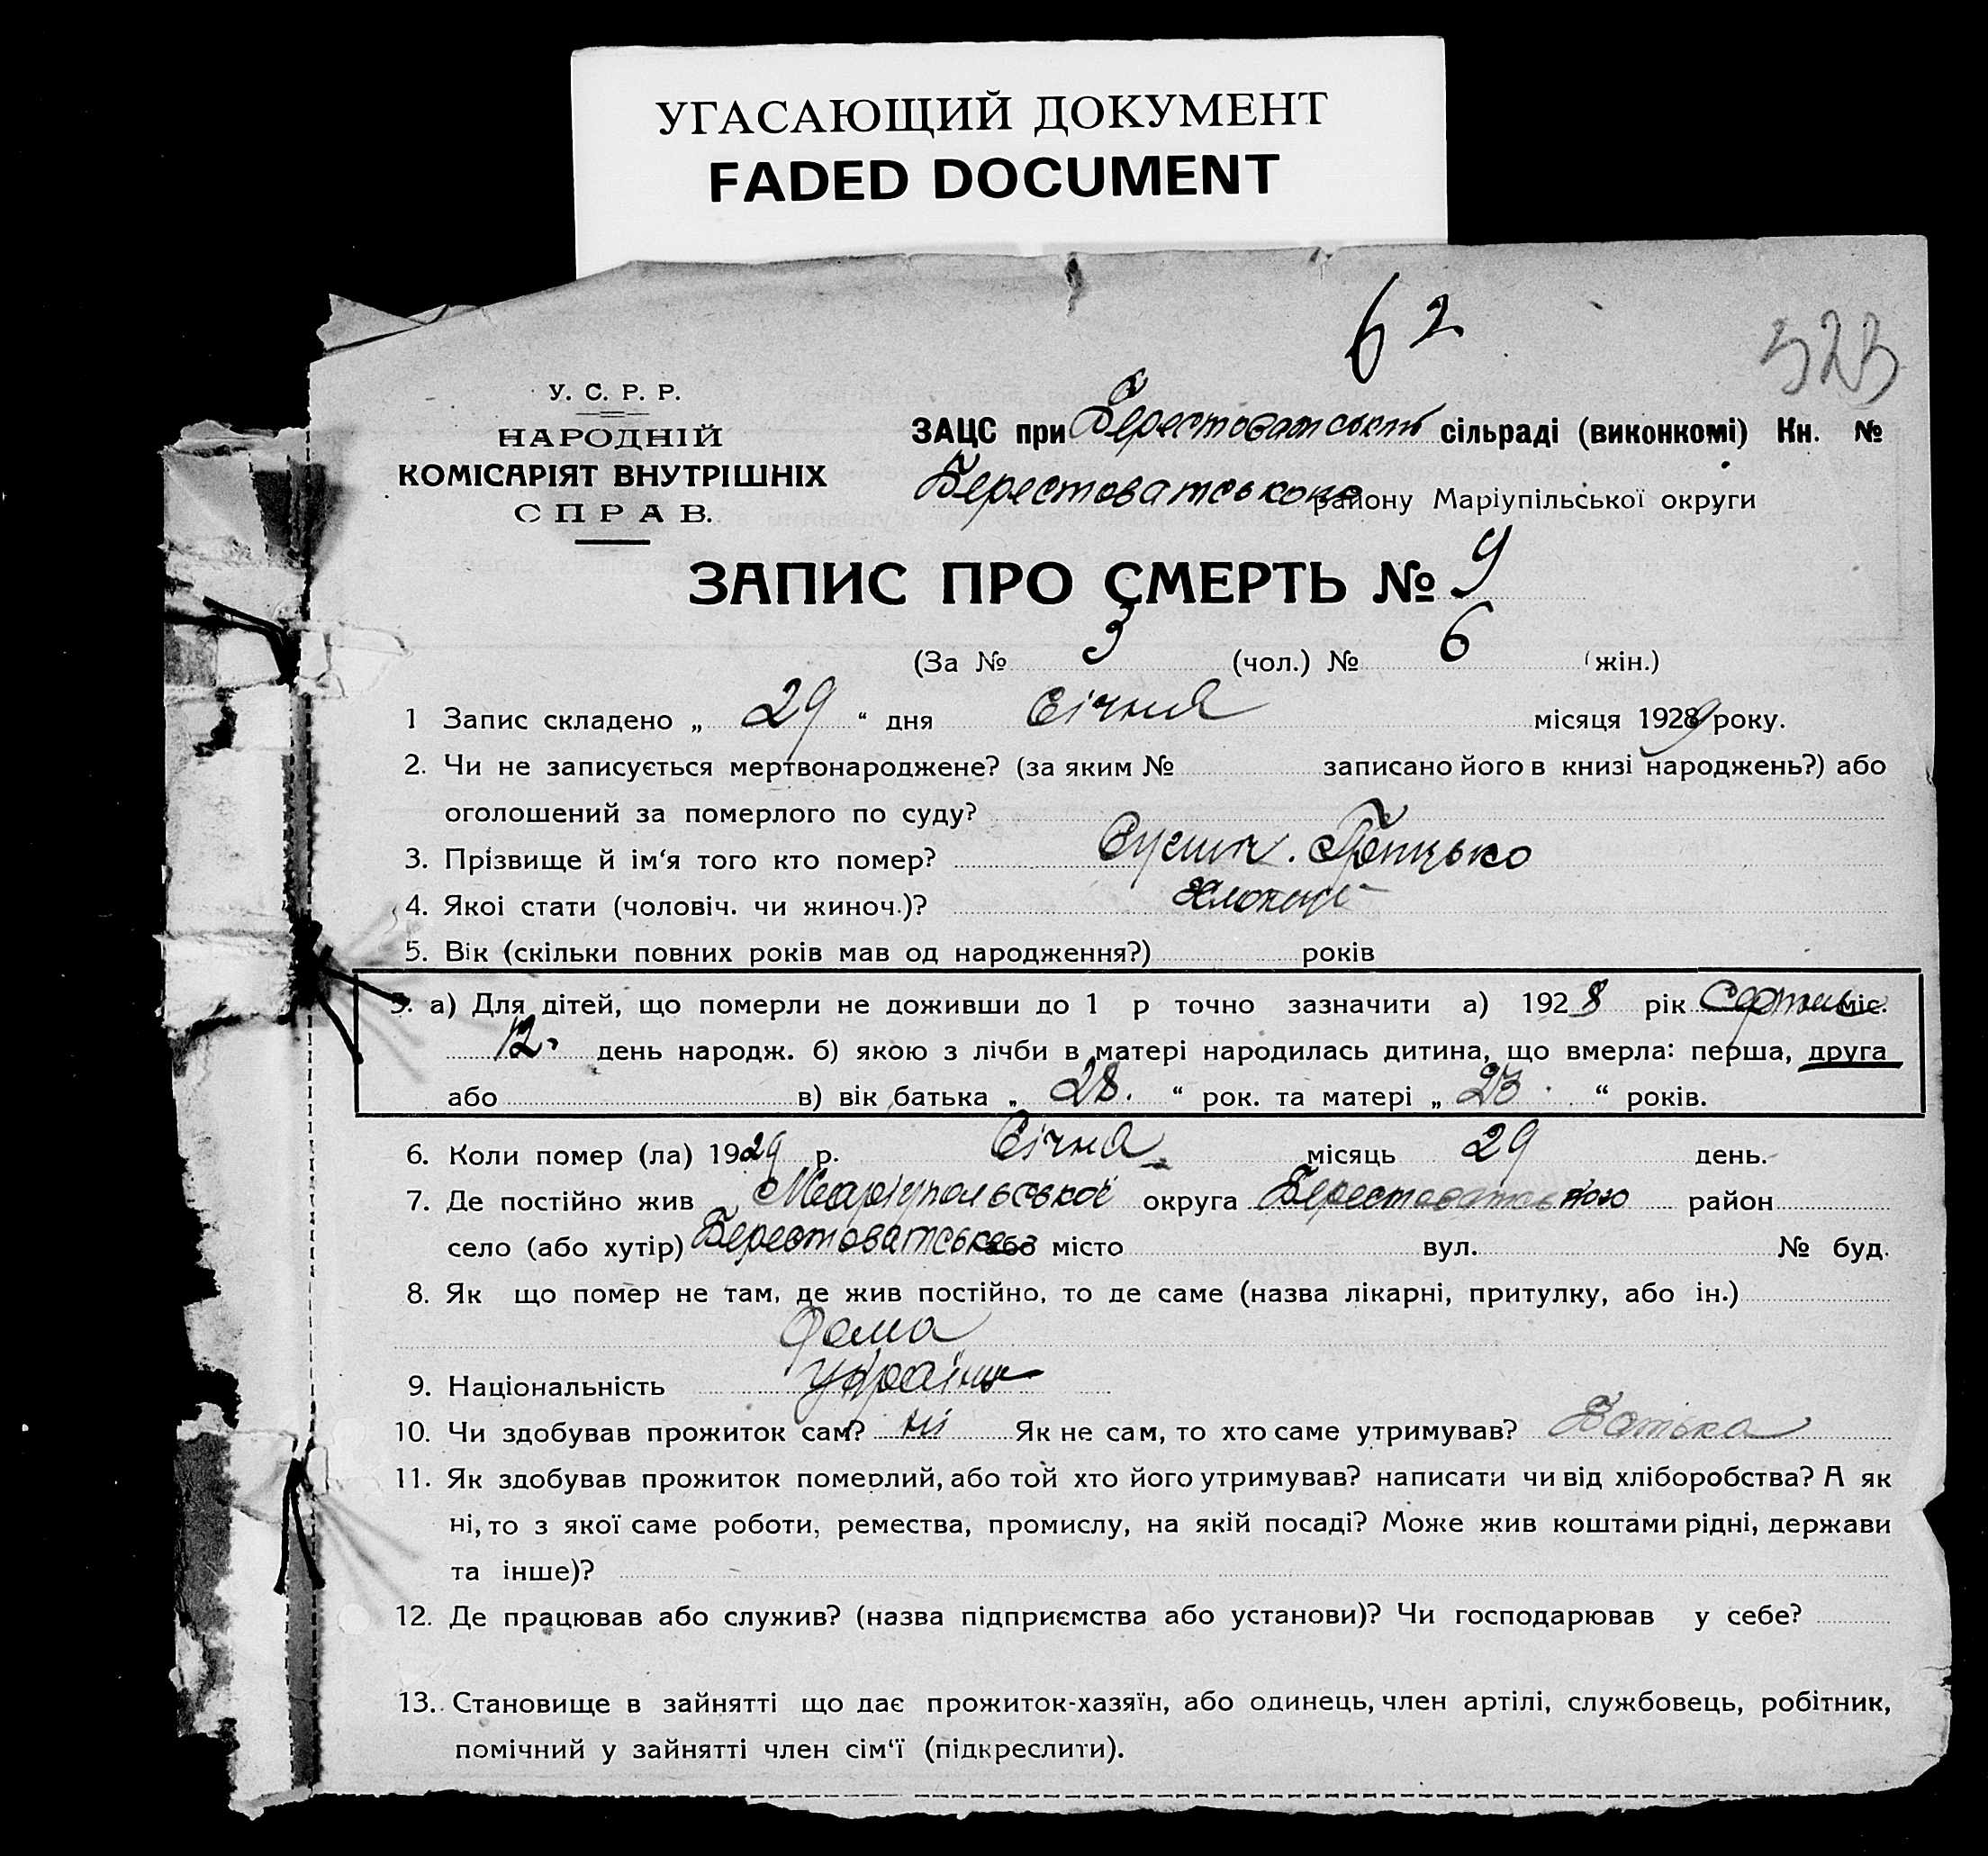 УГАСАЮЩИЙ ДОКУМЕНТ
FADED DOCUMENT
62
323
У. С. Р. Р.
НАРОДНІЙ
КОМІСАРІЯТ ВНУТРІШНІХ
СПРАВ.
ЗАЦС при Берестоватській сільраді (виконкомі) Кн. №
Берестоватського району Маріупільської округи
ЗАПИС ПРО СМЕРТЬ № 9
(За № 3 (чол.) № 6 (жін.)
1 Запис складено „ 29 “ дня Січня місяця 1929 року.
2. Чи не записується мертвонароджене? (за яким № записано його в книзі народжень?) або
оголошений за померлого по суду?
3. Прізвище й ім‘я того кто помер? Грицько
4. Якоі стати (чоловіч. чи жиноч.)? Хлопець
5. Вік (скільки повних років мав од народження?) років
5. а) Для дітей, що померли не доживши до 1 р точно зазначити а) 1928 рік міс.
12. день народж. б) якою з лічби в матері народилась дитина, що вмерла: перша, друга
або в) вік батька „ 28. “ рок. та матері „ 23 “ років.
6. Коли помер (ла) 1929 р. Січня місяць 29 день.
7. Де постійно жив Маріупольської округа Берестоватського район
село (або хутір) Берестоватське або місто вул. № буд.
8. Як що помер не там, де жив постійно, то де саме (назва лікарні, притулку, або ін.)
Дома
9. Національність Україн
10. Чи здобував прожиток сам? ні Як не сам, то хто саме утримував? Батько
11. Як здобував прожиток померлий, або той хто його утримував? написати чи від хліборобства? А як
ні, то з якої саме роботи, ремества, промислу, на якій посаді? Може жив коштами рідні, держави
та інше)?
12. Де працював або служив? (назва підприємства або установи)? Чи господарював у себе?
13. Становище в зайнятті що дає прожиток-хазяїн, або одинець, член артілі, службовець, робітник,
помічний у зайнятті член сім‘ї (підкреслити).